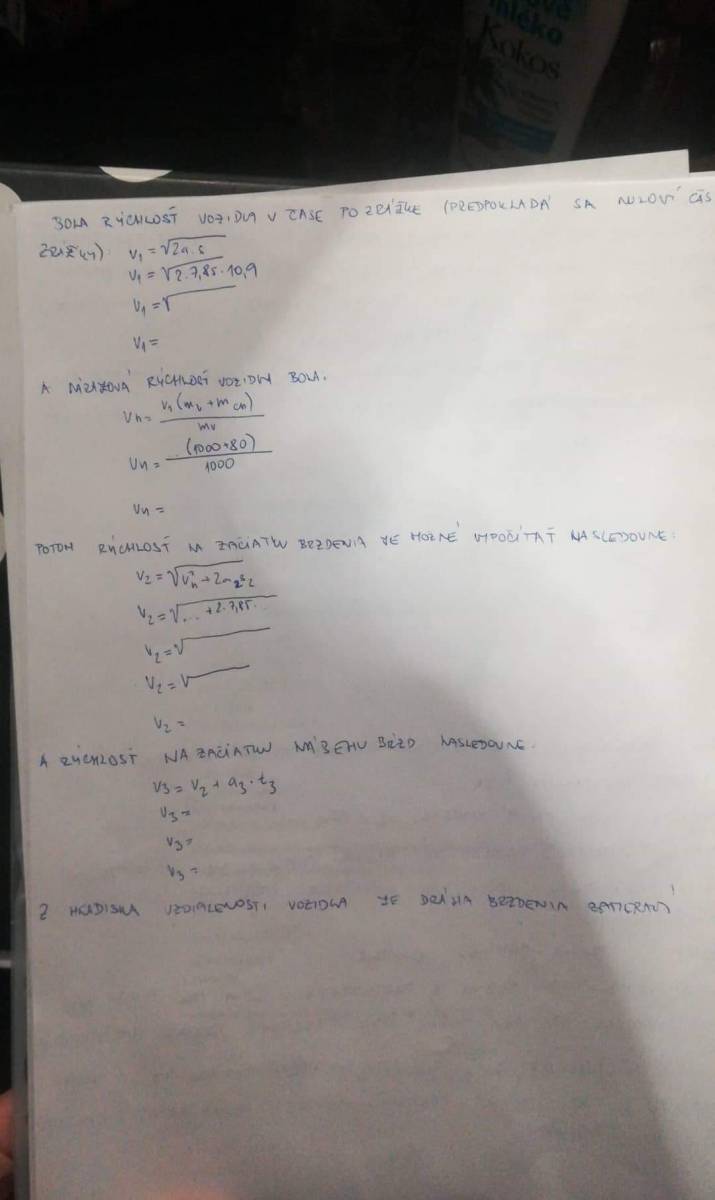 mléko
Kokos
BOLA RÝCHLOSŤ VOZIDLA V ČASE PO ZRÁŽKE (PREDPOKLADÁ SA NULOVÍ ČAS
ZRÁŽKY)
v₁ = √2a.s
v₁ = √2.7,85.10,9
v₁ = √
v₁ =
A NÁRAZOVÁ RÝCHLOSŤ VOZIDLA BOLA.
vₙ = v₁(mᵥ + m_ch) / mᵥ
vₙ = ..(1000+80) / 1000
vₙ =
POTOM RÝCHLOSŤ NA ZAČIATKU BRZDENIA JE MOŽNÉ VYPOČÍTAŤ NASLEDOVNE:
v₂ = √vₙ² + 2a₂s₂
v₂ = √... + 2.7,85...
v₂ = √
v₂ = √
v₂ =
A RÝCHLOSŤ NA ZAČIATKU NÁBEHU BŔZD NASLEDOVNE.
v₃ = v₂ + a₃.t₃
v₃ =
v₃ =
v₃ =
Z HĽADISKA VZDIALENOSTI VOZIDLA JE DRÁHA BRZDENIA